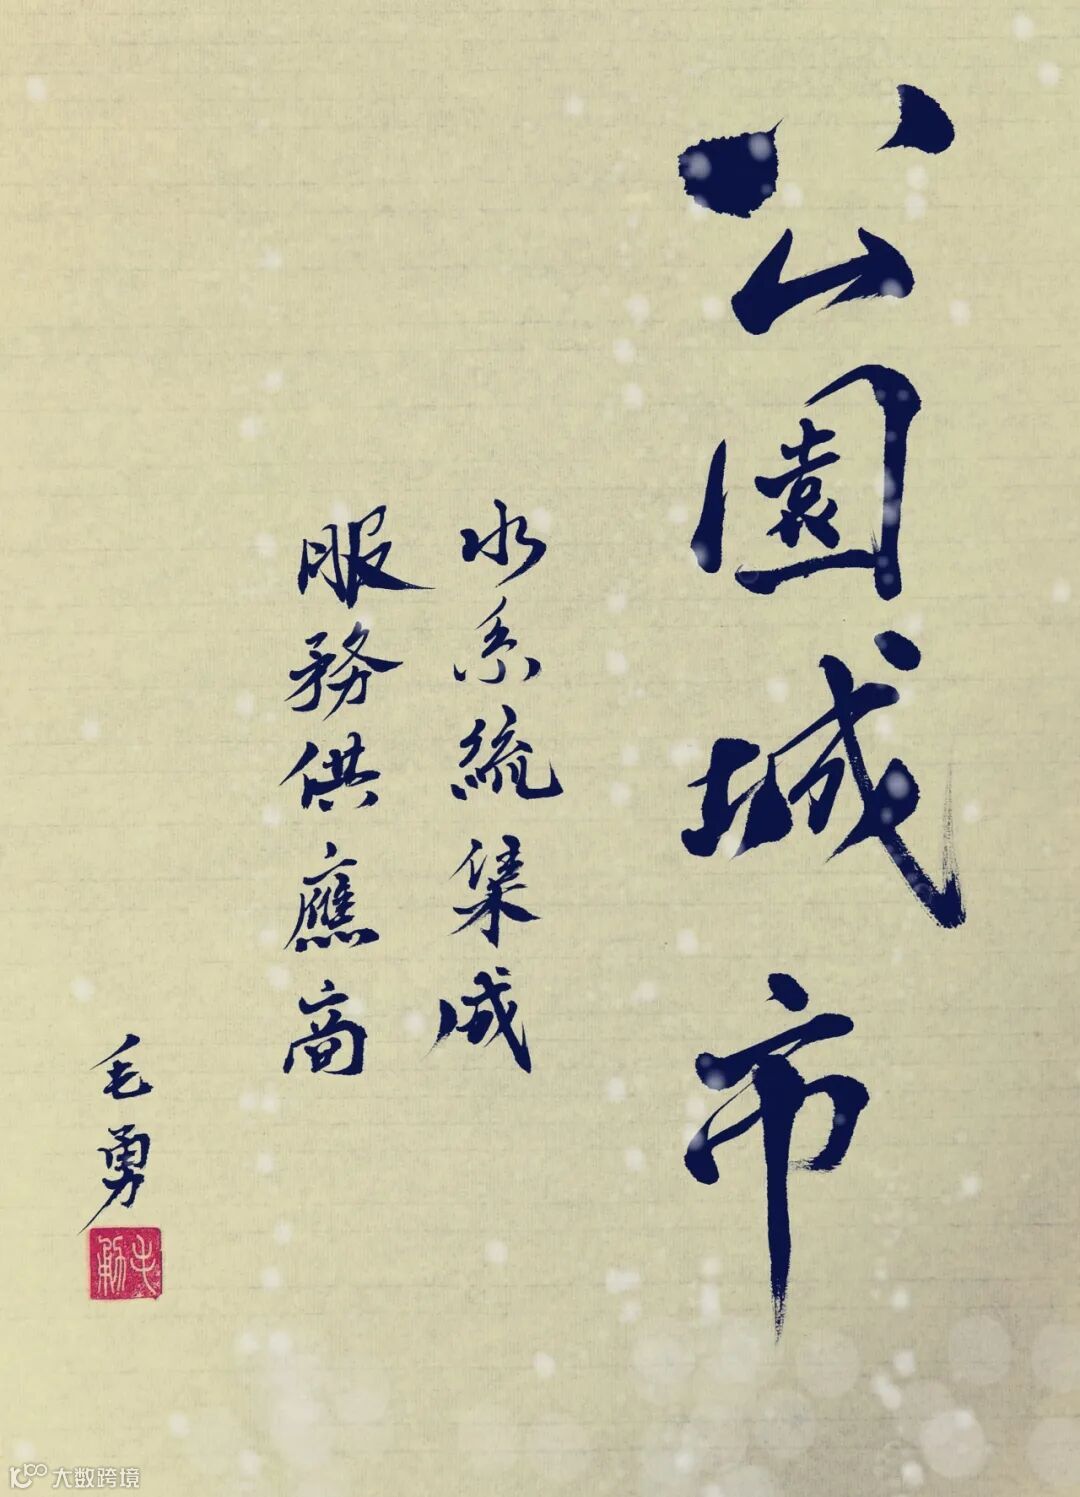 公園城市
水系統集成
服務供應商
毛勇
毛勇
大数跨境